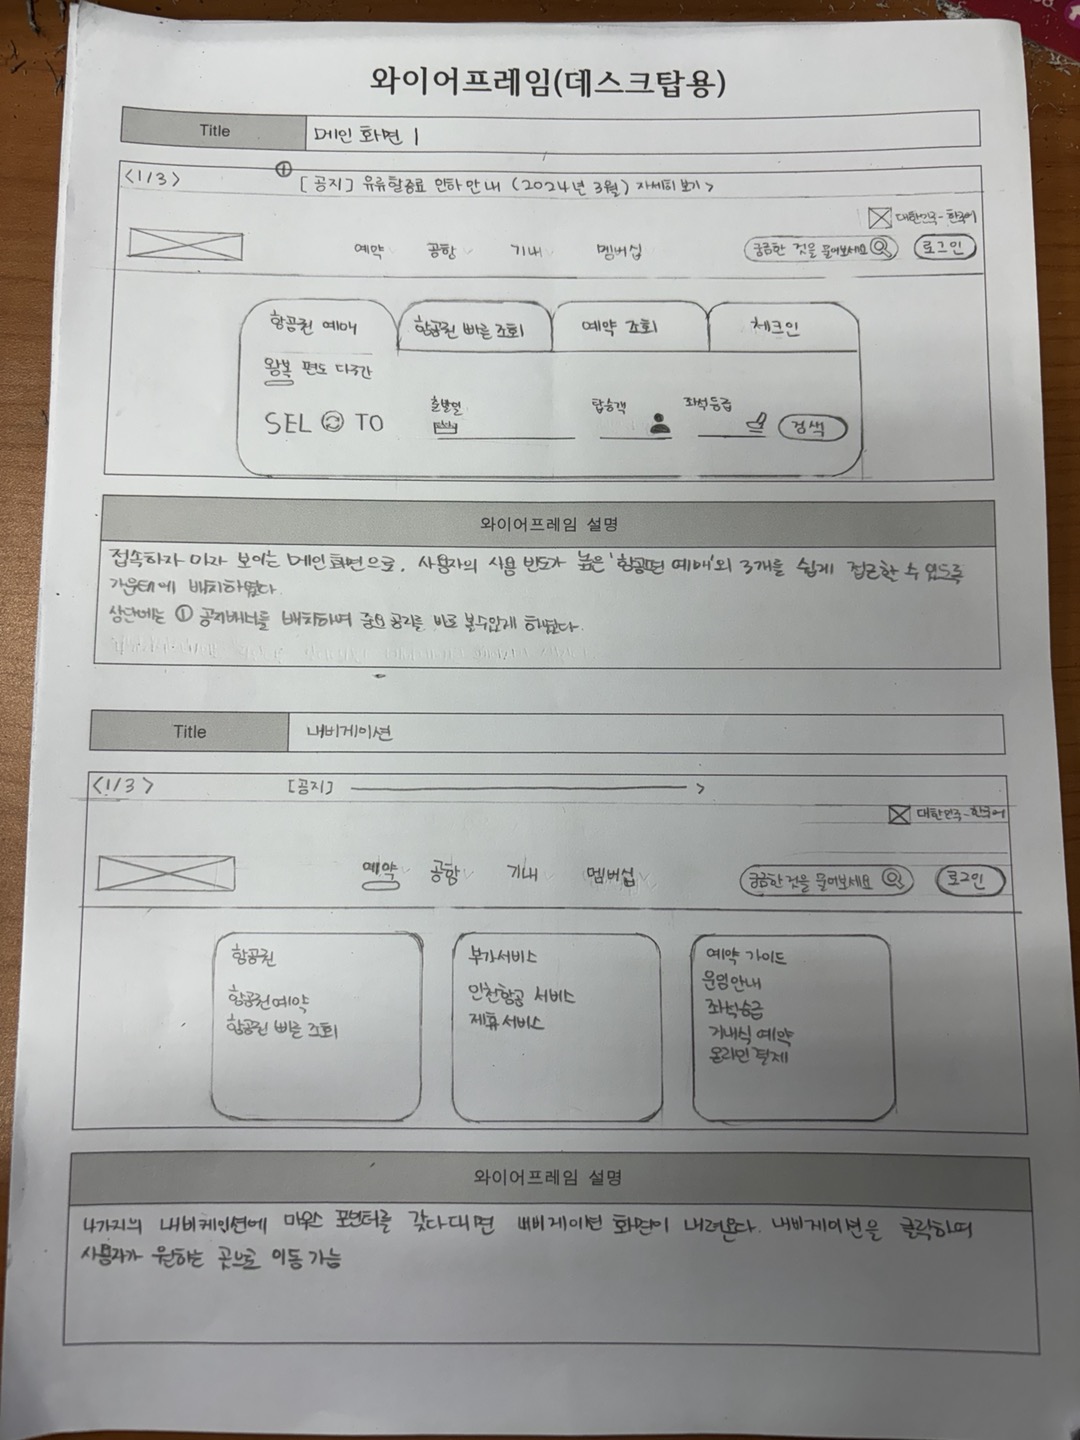 와이어프레임(데스크탑용)
Title 메인 화면 1
<1/3> ① [공지] 유류할증료 인하 안내 (2024년 3월) 자세히 보기 >
대한민국-한국어
예약 공항 기내 멤버십 궁금한 것을 물어보세요 로그인
항공권 예매 항공권 빠른 조회 예약 조회 체크인
왕복 편도 다구간
출발일 탑승객 좌석등급
SEL TO 검색
와이어프레임 설명
접속하자 마자 보이는 메인화면으로, 사용자의 사용 빈도가 높은 '항공편 예매'외 3개를 쉽게 접근할 수 있도록
가운데에 배치하였다.
상단에는 ① 공지배너를 배치하여 중요 공지를 바로 볼수있게 하였다.
Title 내비게이션
<1/3> [공지] >
대한민국-한국어
예약 공항 기내 멤버십 궁금한것을 물어보세요 로그인
항공권 부가서비스 예약 가이드
운임안내
항공권예약 인천항공 서비스 좌석승급
항공권 빠른 조회 제휴 서비스 기내식 예약
온라인 결제
와이어프레임 설명
4가지의 내비게이션에 마우스 포인터를 갖다대면 내비게이션 화면이 내려온다. 내비게이션을 클릭하며
사용자가 원하는 곳으로 이동 가능